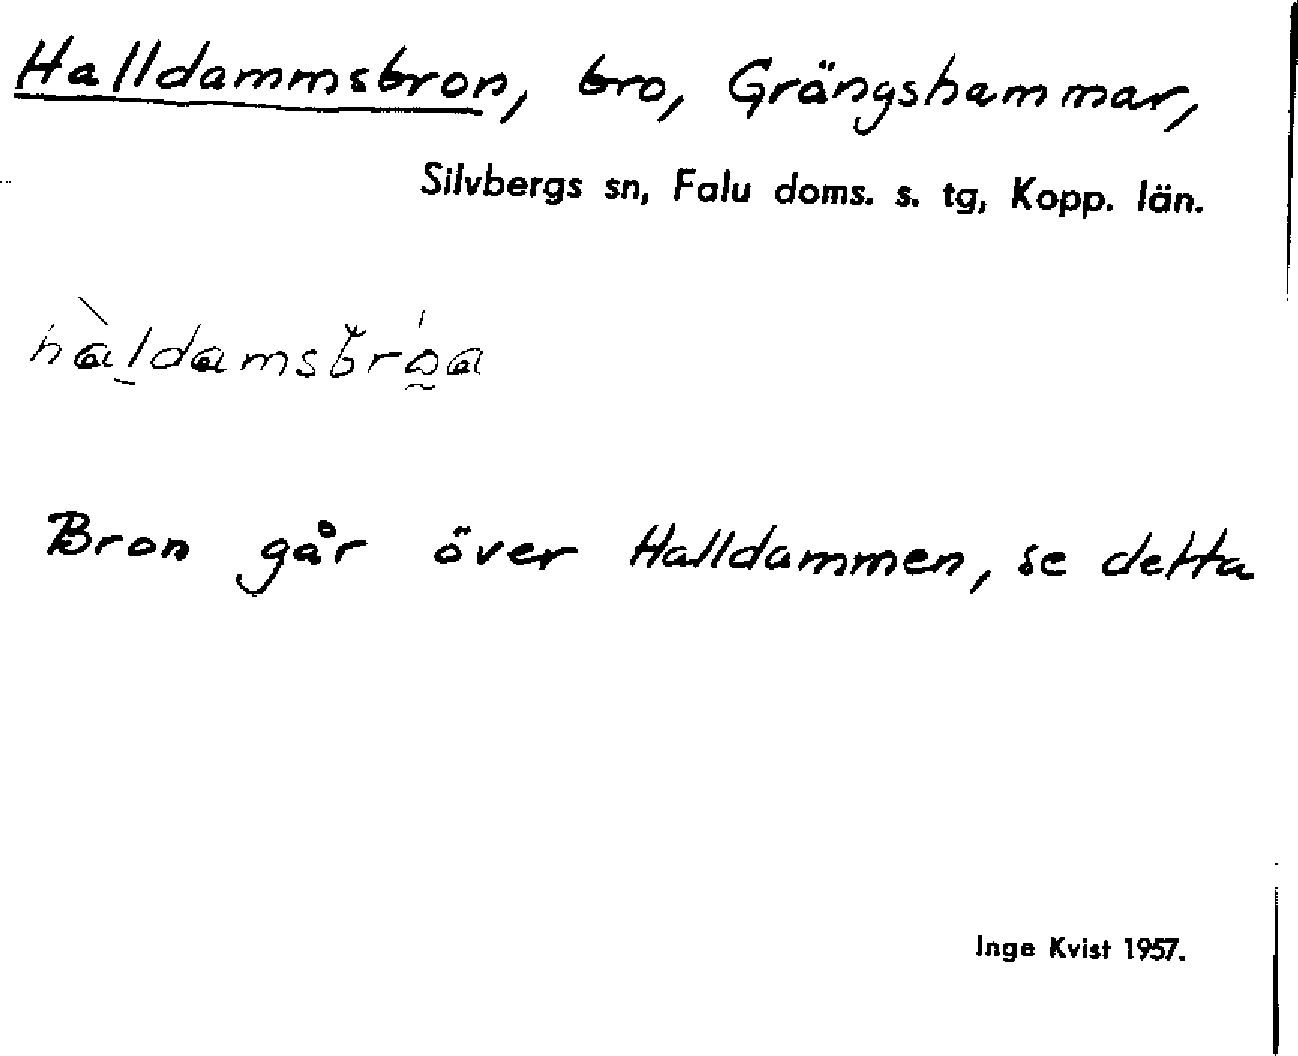 Halldammsbron, bro, Grängshammar,
Silvbergs sn, Falu doms. s. tg, Kopp. län.
hàldamsbróa
Bron går över Halldammen, se detta
Inge Kvist 1957.